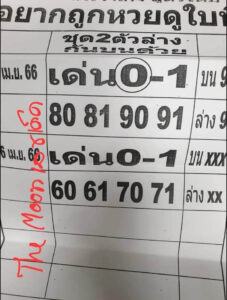 อยากถูกหวยดูใบนี้
ชุด2ตัวล่าง
กันบนด้วย
เม.ย. 66 เด่น0-1 บน 9
80 81 90 91 ล่าง 9
6 เม.ย. 66 เด่น0-1 บน xxx
60 61 70 71 ล่าง xx
The Moon